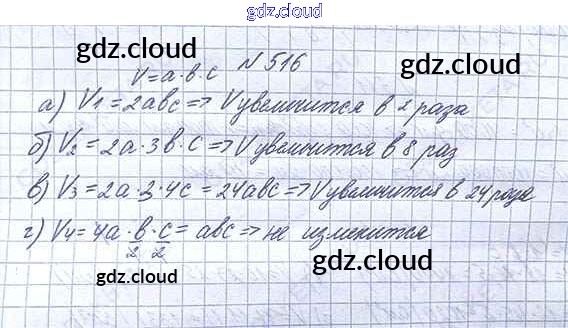 gdz.cloud
gdz.cloud gdz.cloud
V=a·b·c N 516
а) V1 = 2abc => V увеличится в 2 раза
б) V2 = 2a·3b·c => V увеличится в 8 раз
в) V3 = 2a·3·4c = 24abc => V увеличится в 24 раза
г) V4 = 4a·b/2·c/2 = abc => не изменится
gdz.cloud gdz.cloud